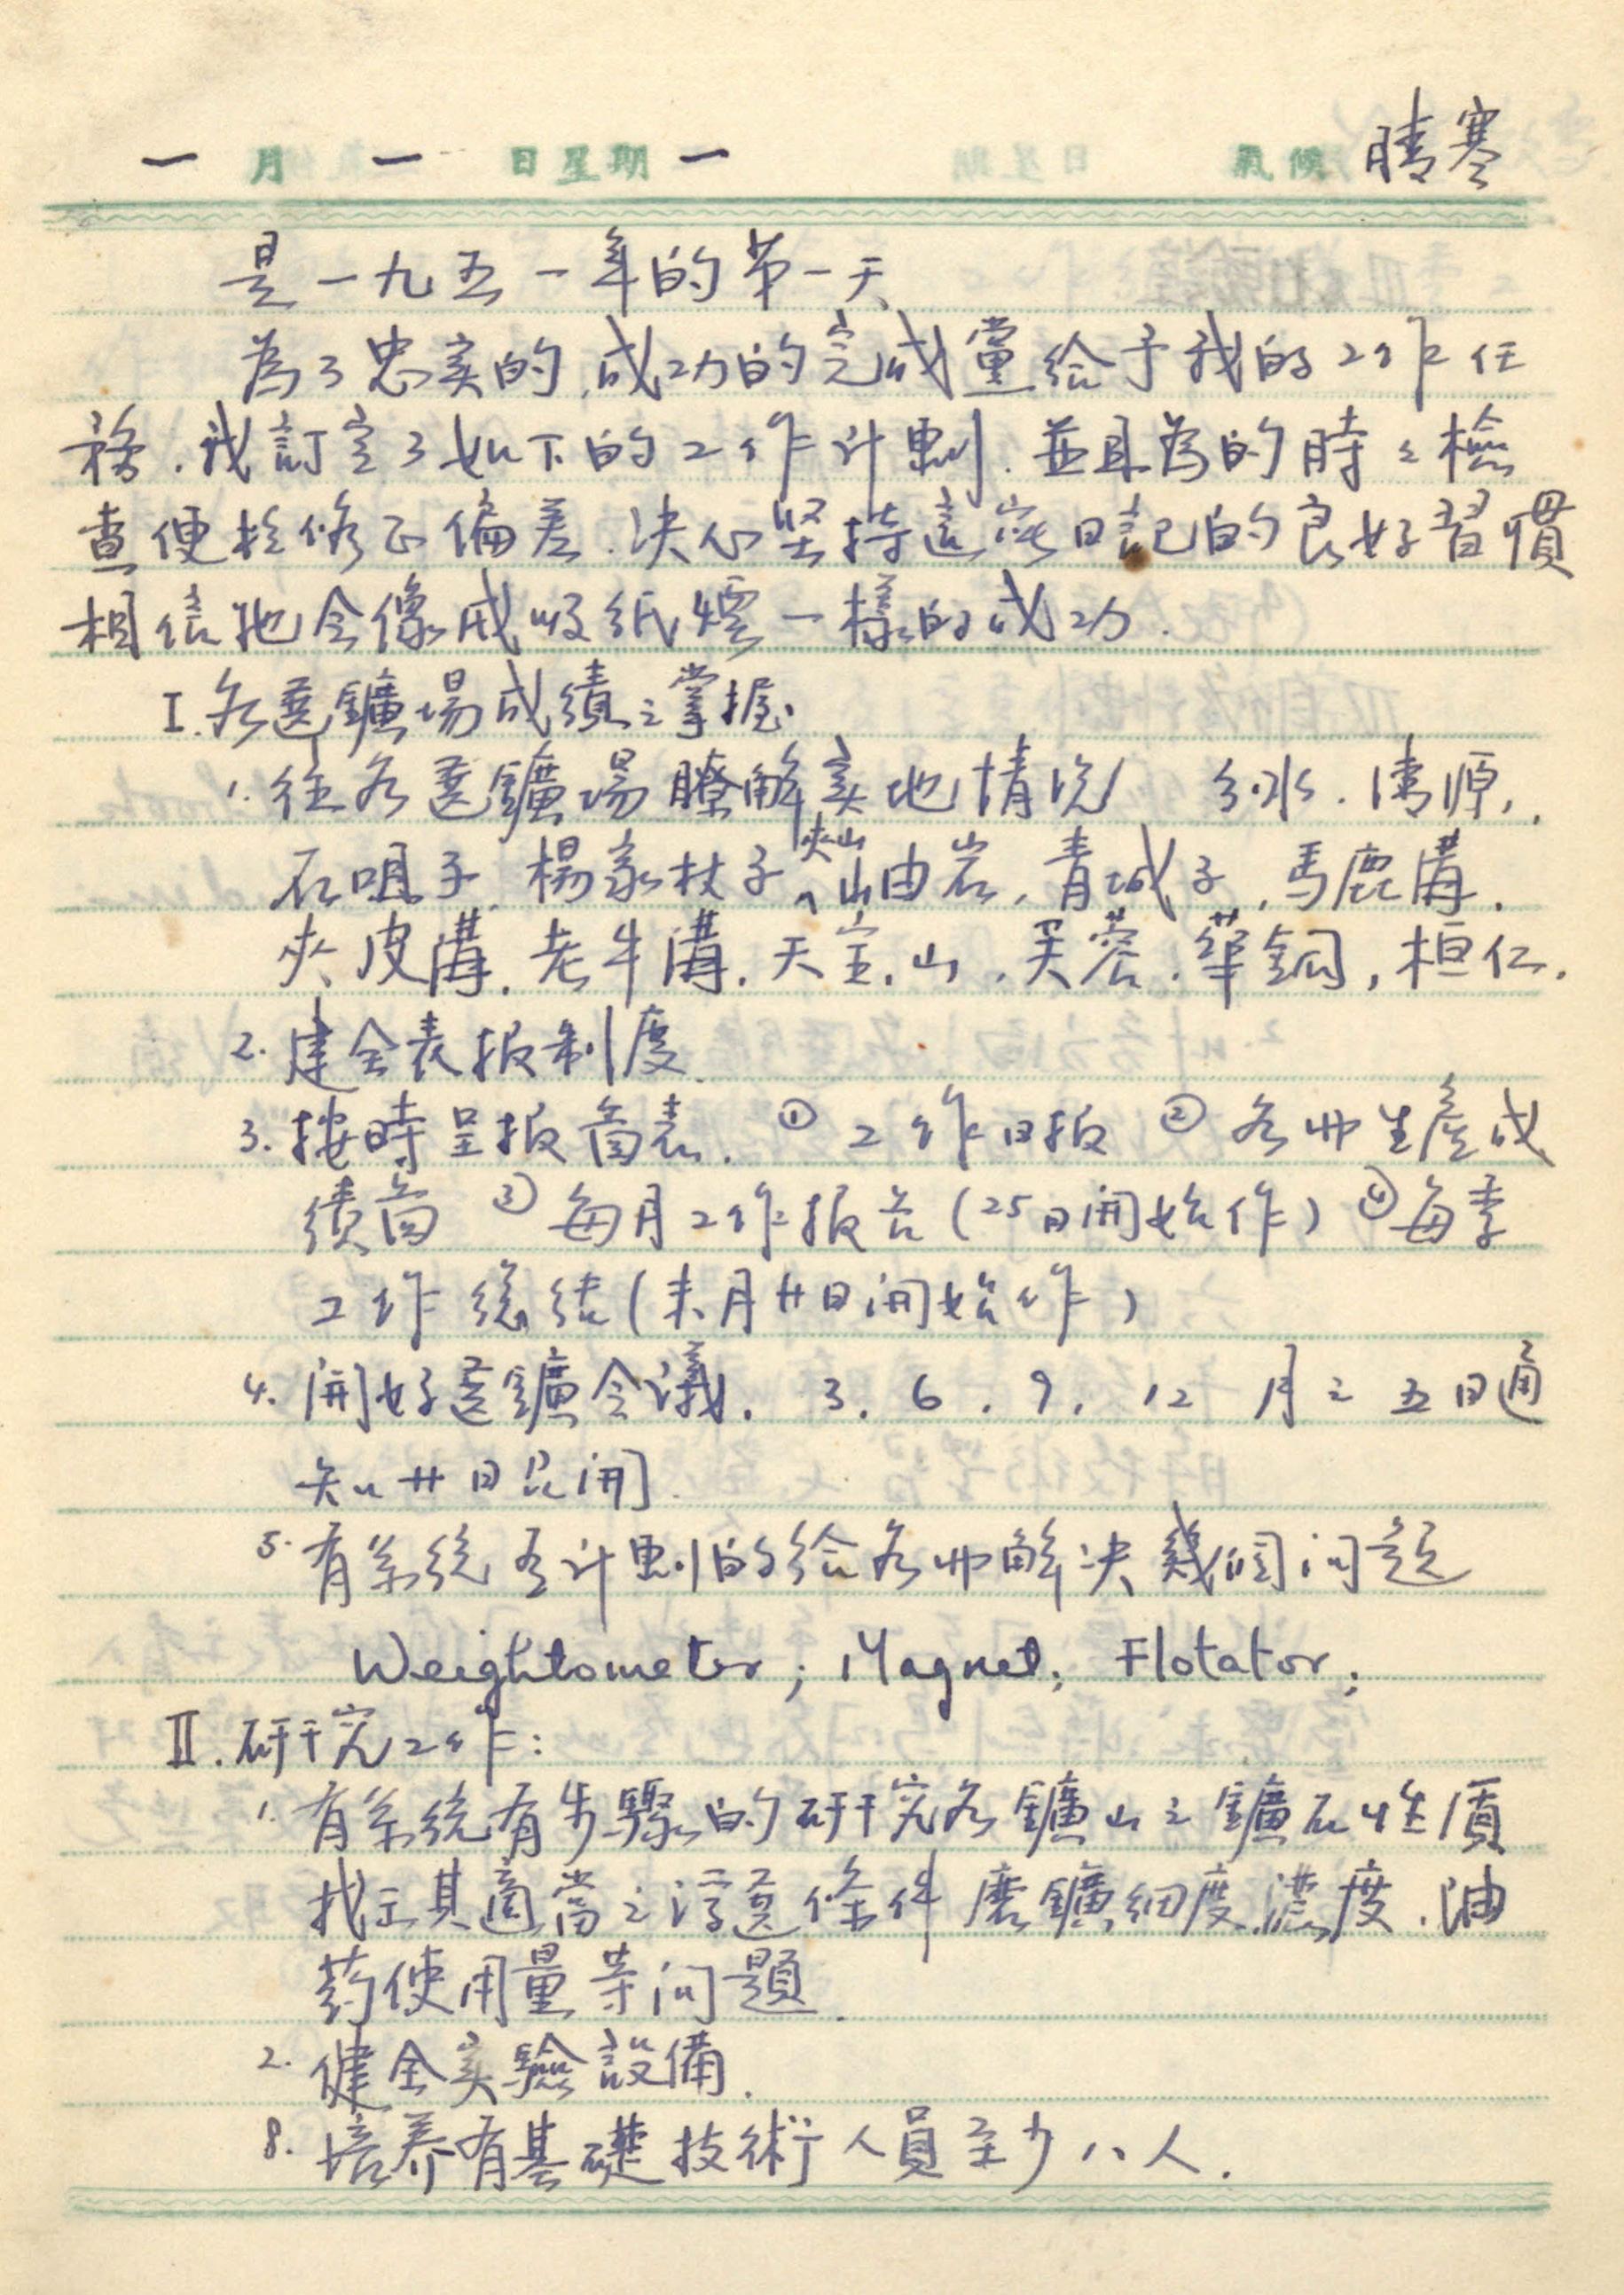 一月一日星期一 氣候 晴寒
是一九五一年的第一天
為了忠实的,成功的完成黨給予我的工作任
務.我訂定了如下的工作计劃.並且為的時々檢
查便於修正偏差.决心坚持這宗日記的良好習慣
相信牠会像戒吸纸煙一樣的成功.
I.各选鑛場成績之掌握.
1.往各选鑛場瞭解实地情况 分水.清源,
石咀子,楊家杖子,夾山,岫岩,青城子,馬鹿溝.
夾皮溝.老牛溝.天宝山,芙蓉.華銅,桓仁.
2.建全表报制度.
3.按時呈报啚表. ①工作日报 ②各卯生産成
绩啚 ③每月工作报告(25日開始作) ④每季
工作總结(末月廿日開始作)
4.開好选鑛会議. 3.6.9.12 月之五日通
知廿日召開.
5.有系統有计劃的给各卯解决幾個问题
Weightometer; Magnet; Flotator;
II.研究工作:
1.有系統有步驟的研究各鑛山之鑛石性質
找出其適當之浮选條件 磨鑛細度,濃度.油
药使用量等问題.
2.健全实驗設備.
8.培养有基礎技術人員至少八人.